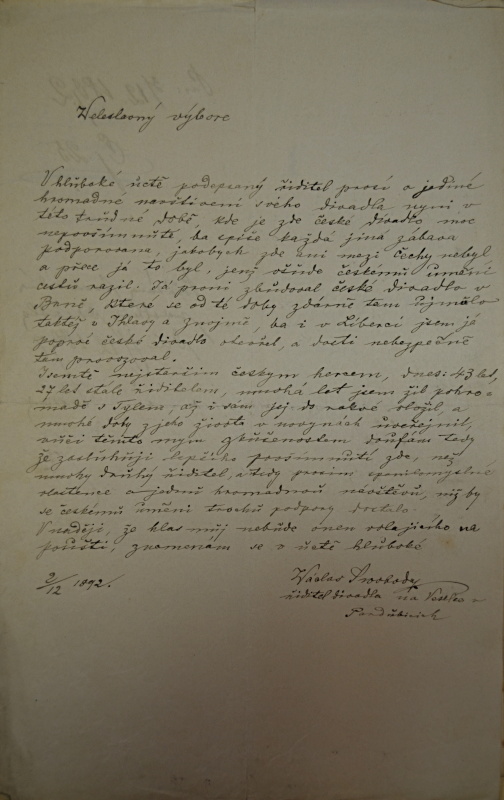 Veleslavný výbore
V hluboké úctě podepsaný ředitel prosí o jediné
hromadné navštívení svého divadla nyní v
této trudné době, kde je zde české divadlo moc
nepovšimnuté, ba spíše každá jiná zábava
podporovana, jakobych zde ani mezi Čechy nebyl
a přece já to byl, jenž všude českému umění
cestu razil. Já první zbudoval české divadlo v
Brně, které se od té doby zdárně tam ujmulo
taktéž v Ihlavy a Znojmě, ba i v Liberci jsem já
poprvé české divadlo otevřel, a dosti nebezpečně
tam provozoval.
Jsemtě nejstarším českym hercem, dnes: 43 let,
27 let stále ředitelem, mnohá let jsem žil pohro-
madě s Tylem, až i sám jej do rakve vložil, a
mnohé doby z jeho života v novynách uveřejnil,
vůči těmto mym zkušenostem doufám tedy
že zasluhuji lepšího povšimnutí zde, než
mnohy druhý ředitel, a tedy prosím
vlastence o jednu hromadnou navštěvu, níž by
se českému umění trochu podpory dostalo.
V naději, že hlas můj nebude onen volajícího na
poušti, znamenám se v úctě hluboké
9/12 1892.
Václav Svoboda
ředitel divadla na
Pardubicích